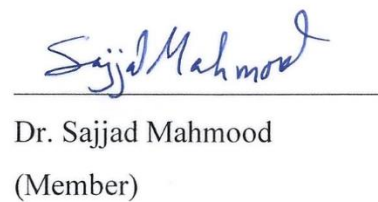 Sajjad Mahmood
Dr. Sajjad Mahmood
(Member)